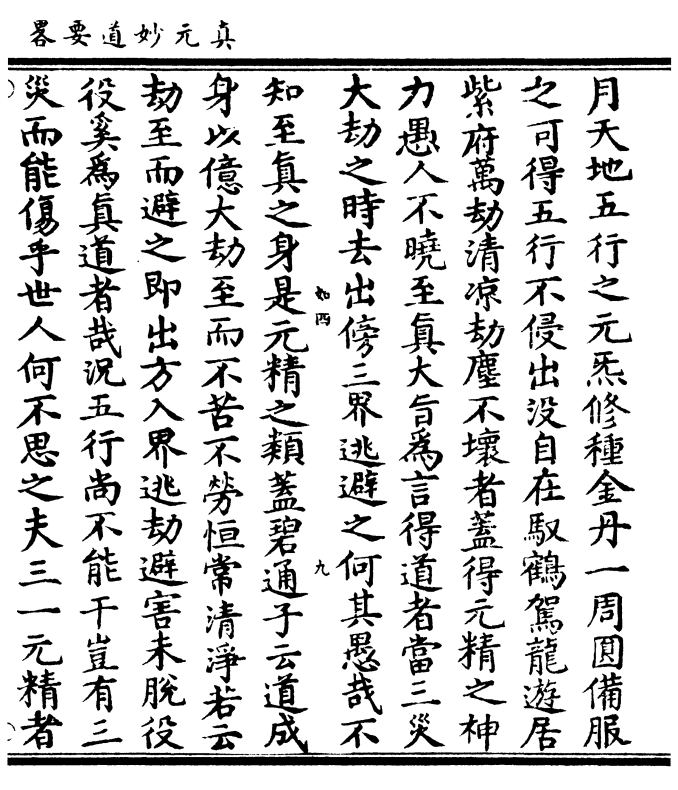 真元妙道要畧
月天地五行之元炁修種金丹一周圓備服
之可得五行不侵出没自在馭鶴駕龍遊居
紫府萬劫清凉劫塵不壞者蓋得元精之神
力愚人不曉至真大旨爲言得道者當三災
大劫之時去出傍三界逃避之何其愚哉不
如四 九
知至真之身是元精之類蓋碧通子云道成
身以億大劫至而不苦不勞恒常清淨若云
劫至而避之即出方入界逃劫避害未脱役
役奚爲真道者哉況五行尚不能干豈有三
災而能傷乎世人何不思之夫三一元精者